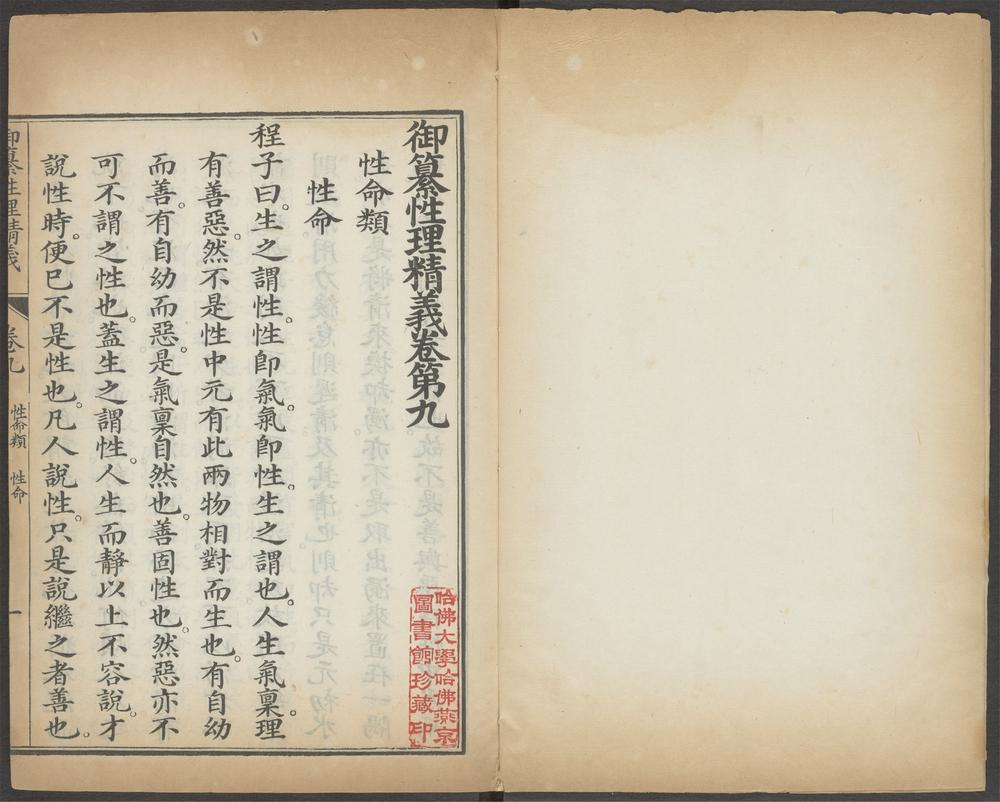 御纂性理精義卷第九
性命類
性命
程子曰。生之謂性。性卽氣。氣卽性。生之謂也。人生氣稟。理
有善惡。然不是性中元有此兩物相對而生也。有自幼
而善。有自幼而惡。是氣稟自然也。善固性也。然惡亦不
可不謂之性也。蓋生之謂性。人生而靜以上不容說。才
說性時。便已不是性也。凡人說性。只是說繼之者善也。
御纂性理精義
卷九
性命類 性命
一
哈佛大學哈佛燕京
圖書館珍藏印